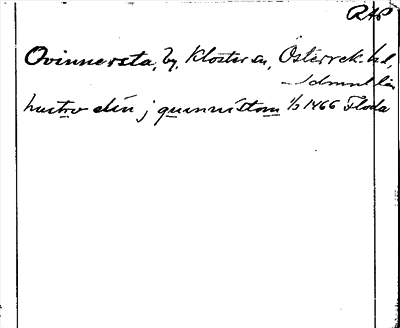 RAP
Qvinnersta, by, Kloster sn, Österrek. hd,
Sdmnl län
hustro din j quinnistom 1/3 1466 Floda